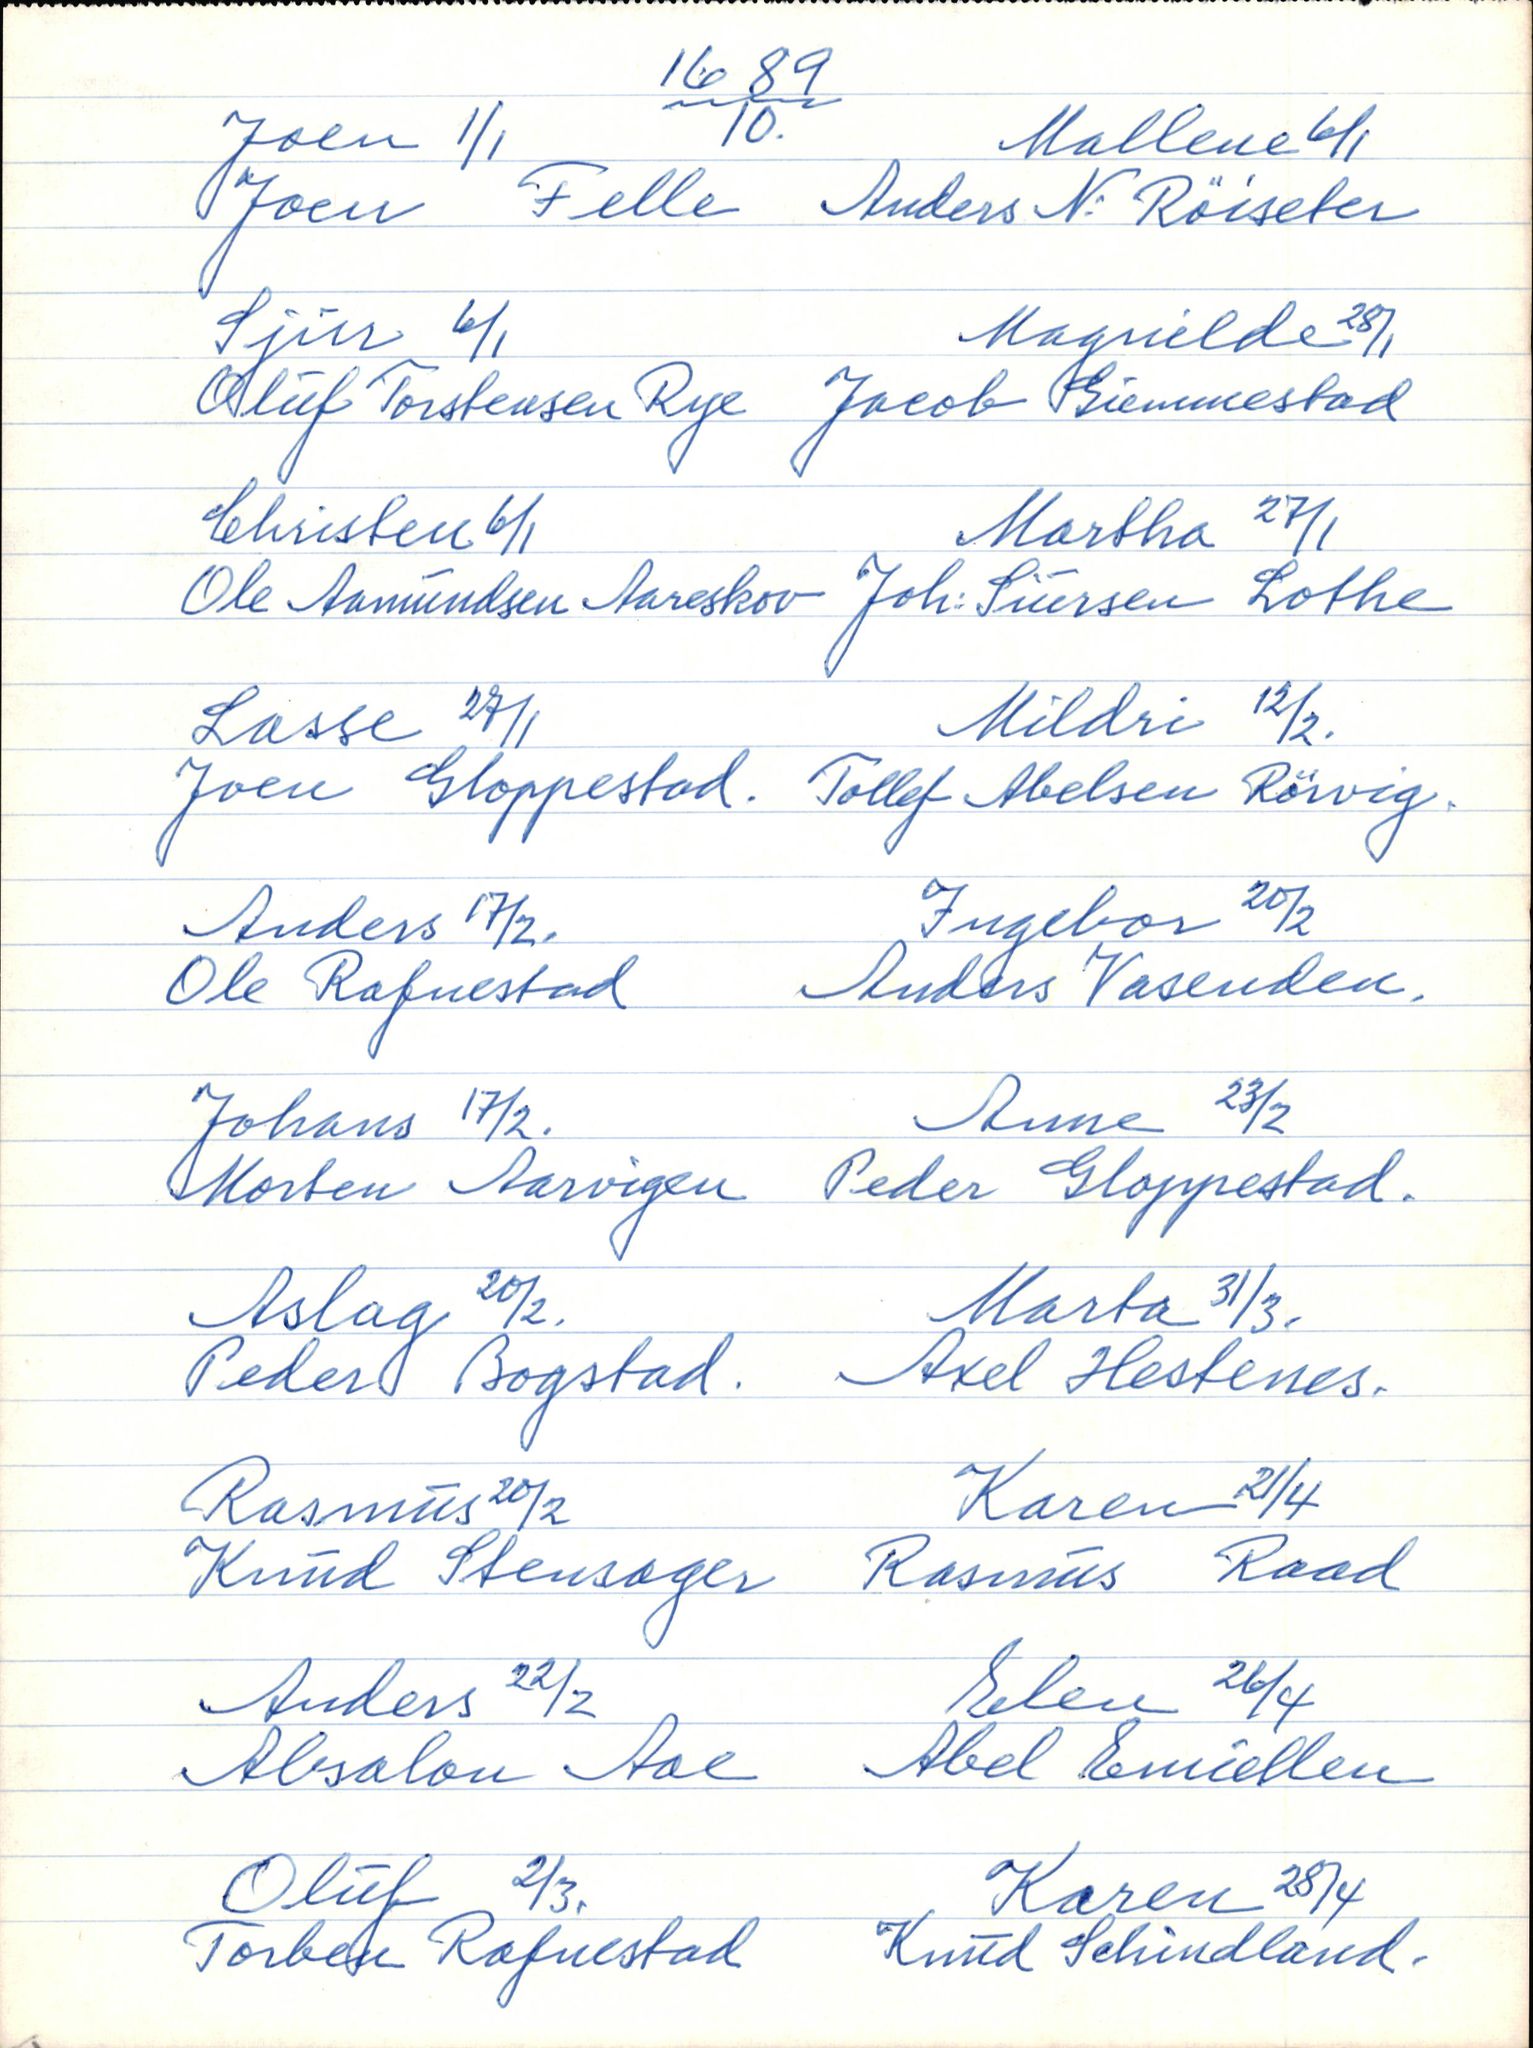 1689
10.
Joen 1/1 Mallene 6/1
Joen Felle Anders N: Röiseter
Sjūr 6/1 Magnielde 28/1
Olūf Torstensen Rye Jacob Giemmestad
Christen 6/1 Martha 27/1
Ole Aamūndsen Aareskov Joh: Siūrsen Lothe
Lasse 27/1 Mildri 12/2.
Joen Gloppestad. Tollef Abelsen Rörvig.
Anders 17/2. Ingebor 20/2
Ole Rafnestad Anders Vasenden.
Johans 17/2. Anne 23/2
Morten Aarvigen Peder Gloppestad.
Aslag 20/2. Marta 31/3.
Peder Bogstad. Axel Hestenes.
Rasmūs 20/2 Karen 21/4
Knūd Stensager Rasmūs Raad
Anders 22/2 Elen 26/4
Absalon Aae Abel Emiellen
Olūf 2/3. Karen 28/4
Torben Rafnestad Knūd Schindland.